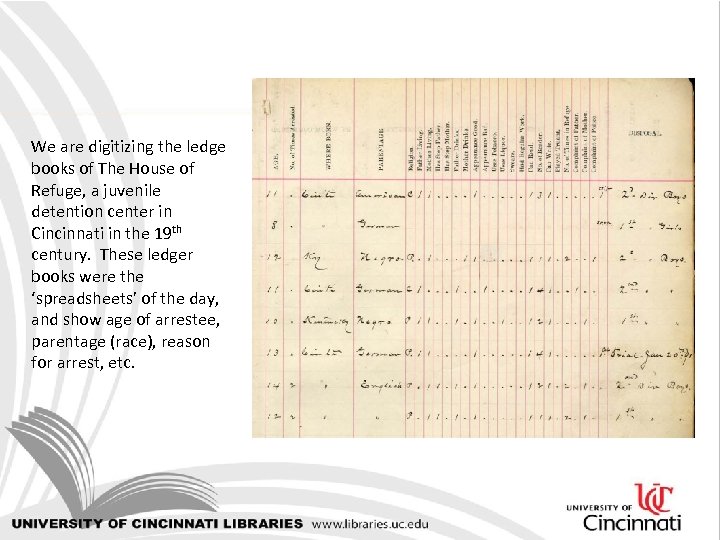 We are digitizing the ledge
books of The House of
Refuge, a juvenile
detention center in
Cincinnati in the 19 th
century. These ledger
books were the
‘spreadsheets’ of the day,
and show age of arrestee,
parentage (race), reason
for arrest, etc.
AGE.
No. of Times Arrested.
WHERE BORN.
PARENTAGE.
Religion.
Father Living.
Mother Living.
Has Step Father.
Has Step Mother.
Father Drinks.
Mother Drinks.
Appearance Good.
Appearance Bad.
Uses Tobacco.
Uses Liquor.
Swears.
Had Regular Work.
Can Read.
No. of Reader.
Can Write.
Played Truant.
No. of Times in Refuge.
Complaint of Father.
Complaint of Mother.
Complaint of Police.
DISPOSAL
11 American C 1 1 1 3 1 2nd Div Boys
8 German 1st Girls
12 Ky Negro P 1 1 1 1 1 1 2 1 2 Boys
11 German C 1 1 1 1 4 1 2nd
10 Kentucky Negro P 1 1 1 1 1 1 2 1 1st
13 German P 1 1 1 4 1 1st Trial Jan 20
14 2 English P 1 1 1 1 1 2 1 2 2nd Div Boys
12 2 P 1 1 1 1 1 1 2 1 2 1st
UNIVERSITY OF CINCINNATI LIBRARIES www.libraries.uc.edu
UNIVERSITY OF
Cincinnati